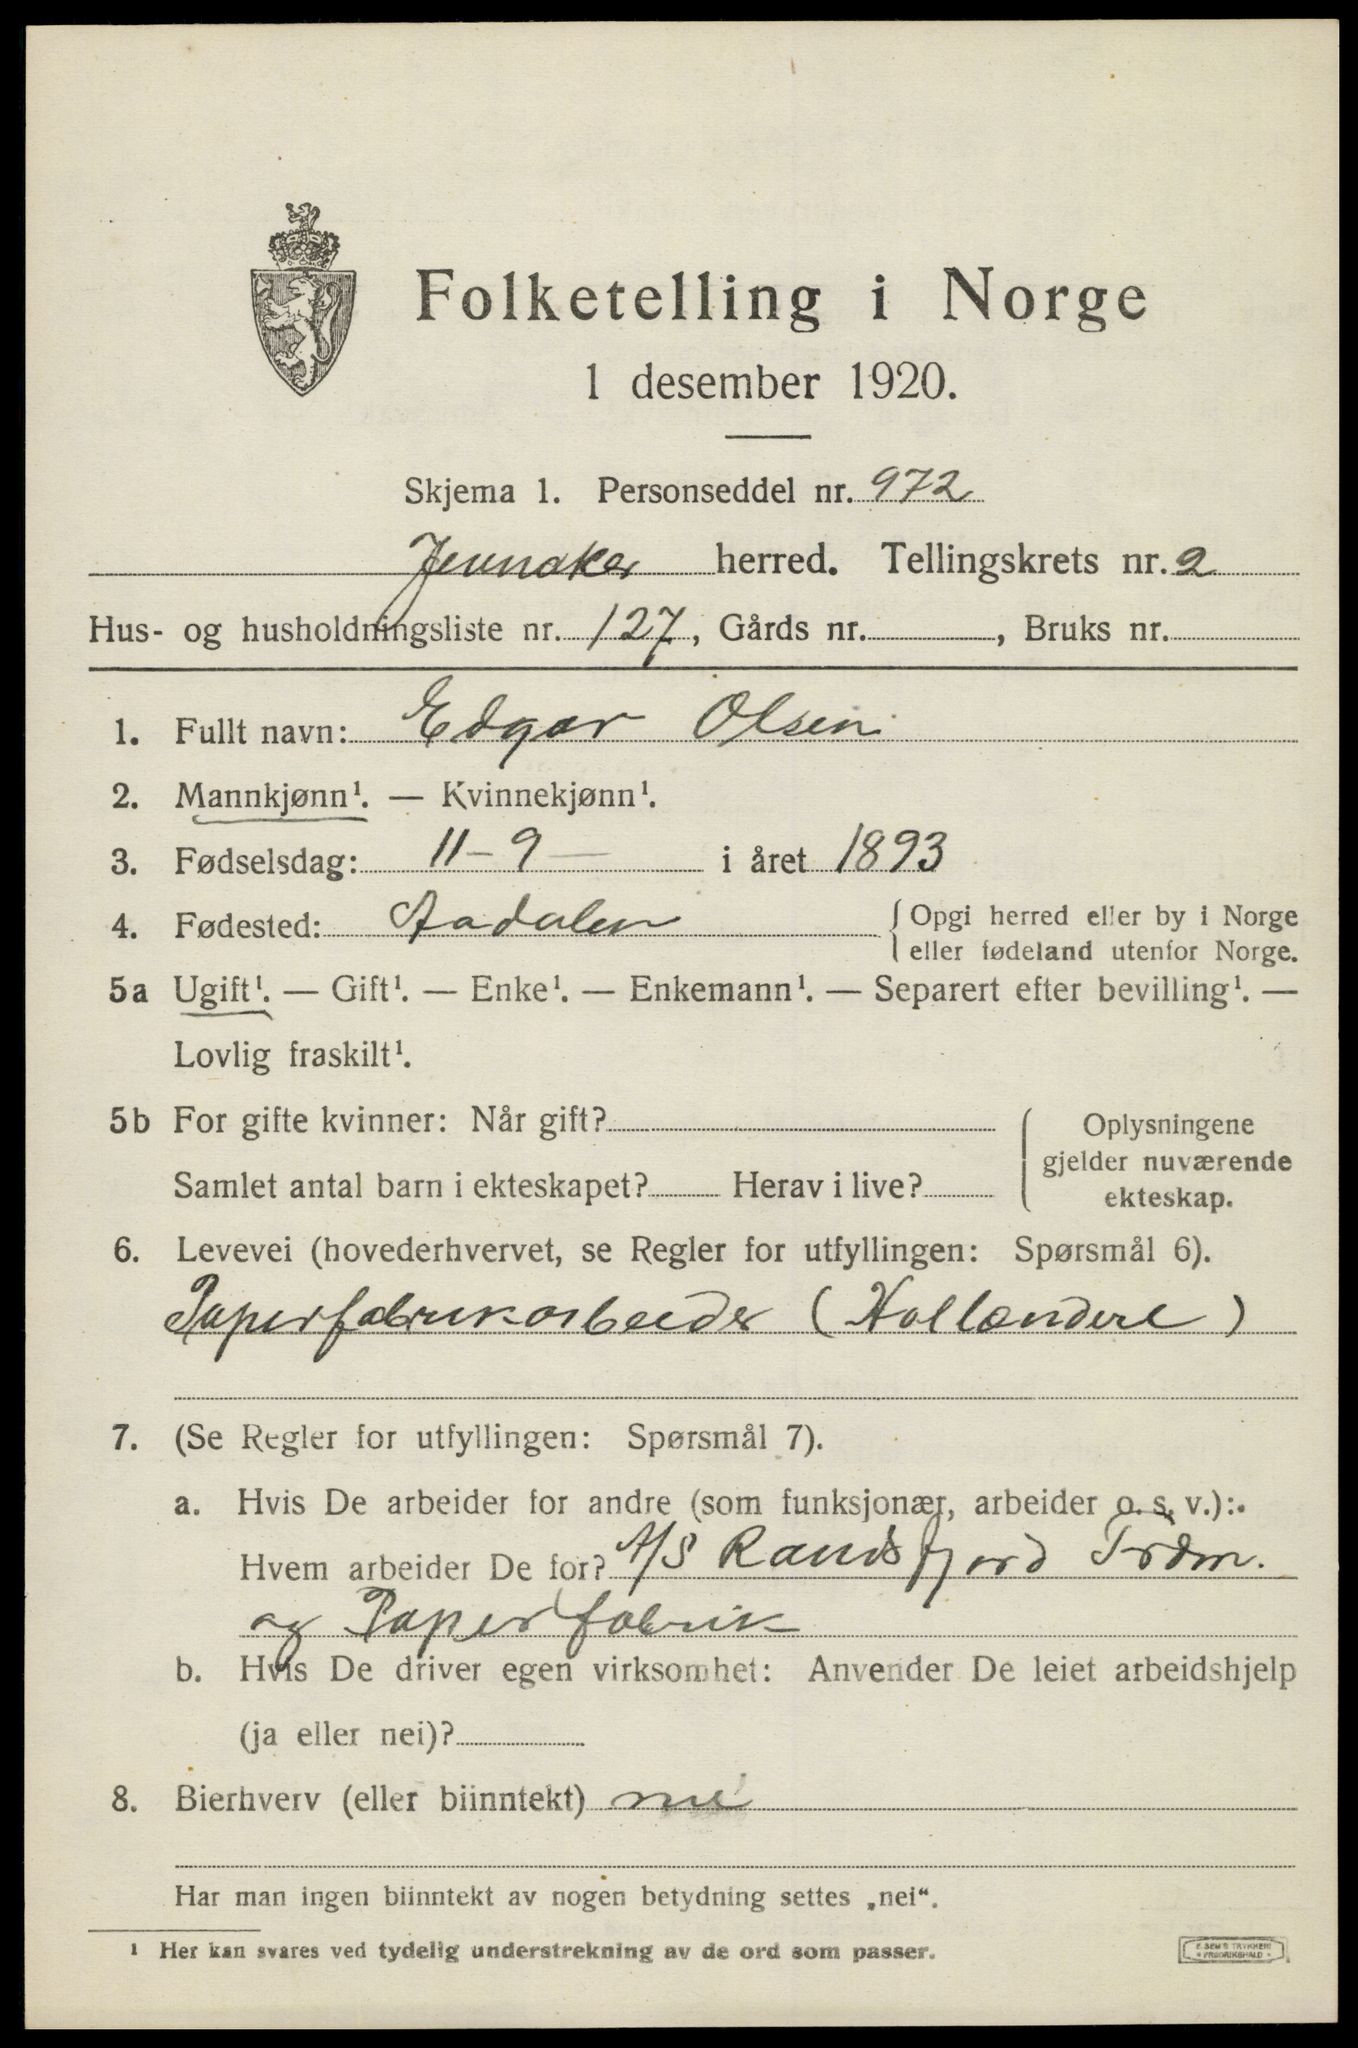 Folketelling i Norge
1 desember 1920.
Skjema 1. Personseddel nr. 972
Jevnaker herred. Tellingskrets nr. 2
Hus- og husholdningsliste nr. 127, Gårds nr. , Bruks nr.
1. Fullt navn: Edgar Olsen
2. Mannkjønn¹. — Kvinnekjønn¹.
3. Fødselsdag: 11-9- i året 1893
4. Fødested: Aadalen { Opgi herred eller by i Norge
eller fødeland utenfor Norge.
5a Ugift¹. — Gift¹. — Enke¹. — Enkemann¹. — Separert efter bevilling¹. —
Lovlig fraskilt¹.
5b For gifte kvinner: Når gift?
Samlet antal barn i ekteskapet? Herav i live?
Oplysningene
gjelder nuværende
ekteskap.
6. Levevei (hovederhvervet, se Regler for utfyllingen: Spørsmål 6).
Paperfabrikarbeider (Hollændere)
7. (Se Regler for utfyllingen: Spørsmål 7).
a. Hvis De arbeider for andre (som funksjonær, arbeider o. s. v.):
Hvem arbeider De for? A/S Randsfjord Træm.
og Paperfabrik
b. Hvis De driver egen virksomhet: Anvender De leiet arbeidshjelp
(ja eller nei)?
8. Bierhverv (eller biinntekt) nei
Har man ingen biinntekt av nogen betydning settes „nei“.
¹ Her kan svares ved tydelig understrekning av de ord som passer.
E. SEM'S TRYKKERI
FREDRIKSHALD